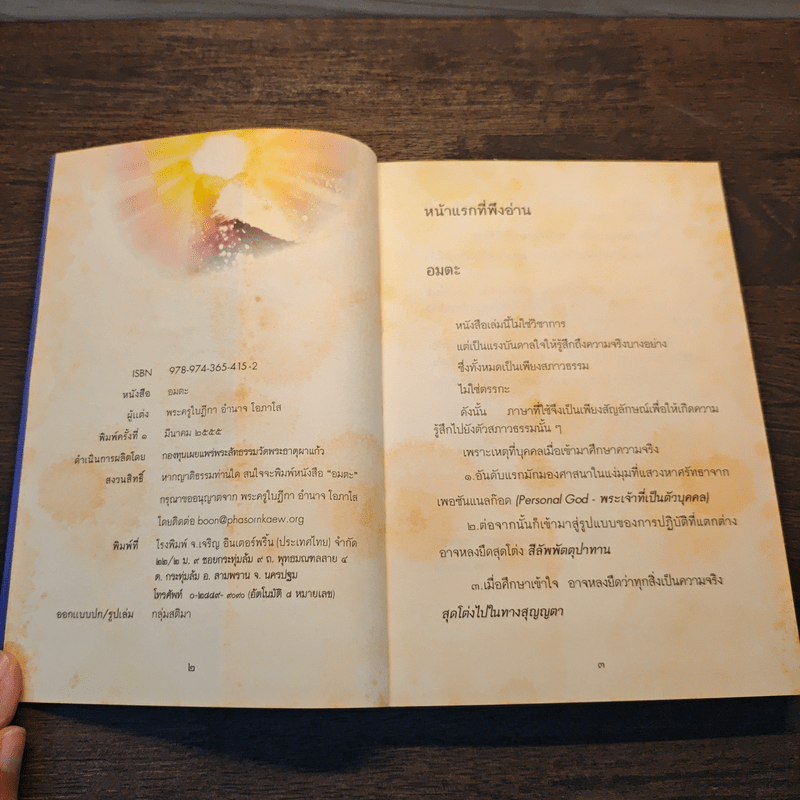 ISBN 978-974-365-415-2
หนังสือ อมตะ
ผู้แต่ง พระครูใบฎีกา อำนาจ โอภาโส
พิมพ์ครั้งที่ ๑ มีนาคม ๒๕๕๕
ดำเนินการผลิตโดย กองทุนเผยแพร่พระสัทธรรมวัดพระธาตุผาแก้ว
สงวนสิทธิ์ หากญาติธรรมท่านใด สนใจจะพิมพ์หนังสือ "อมตะ"
กรุณาขออนุญาตจาก พระครูใบฎีกา อำนาจ โอภาโส
โดยติดต่อ boon@phasornkaew.org
พิมพ์ที่ โรงพิมพ์ จ.เจริญ อินเตอร์พริ้น (ประเทศไทย) จำกัด
๒๒/๒ ม. ๙ ซอยกระทุ่มล้ม ๙ ถ. พุทธมณฑลสาย ๔
ต. กระทุ่มล้ม อ. สามพราน จ. นครปฐม
โทรศัพท์ ๐-๒๘๘๙-๙๐๙๐ (อัตโนมัติ ๘ หมายเลข)
ออกแบบปก/รูปเล่ม กลุ่มสติมา
๒
หน้าแรกที่พึงอ่าน
อมตะ
หนังสือเล่มนี้ไม่ใช่วิชาการ
แต่เป็นแรงบันดาลใจให้รู้สึกถึงความจริงบางอย่าง
ซึ่งทั้งหมดเป็นเพียงสภาวธรรม
ไม่ใช่ตรรกะ
ดังนั้น ภาษาที่ใช้จึงเป็นเพียงสัญลักษณ์เพื่อให้เกิดความ
รู้สึกไปยังตัวสภาวธรรมนั้น ๆ
เพราะเหตุที่บุคคลเมื่อเข้ามาศึกษาความจริง
๑.อันดับแรกมักมองศาสนาในแง่มุมที่แสวงหาศรัทธาจาก
เพอซันแนลก๊อด (Personal God - พระเจ้าที่เป็นตัวบุคคล)
๒.ต่อจากนั้นก็เข้ามาสู่รูปแบบของการปฏิบัติที่แตกต่าง
อาจหลงยึดสุดโต่ง สีลัพพัตตุปาทาน
๓.เมื่อศึกษาเข้าใจ อาจหลงยึดว่าทุกสิ่งเป็นความจริง
สุดโต่งไปในทางสุญญตา
๓